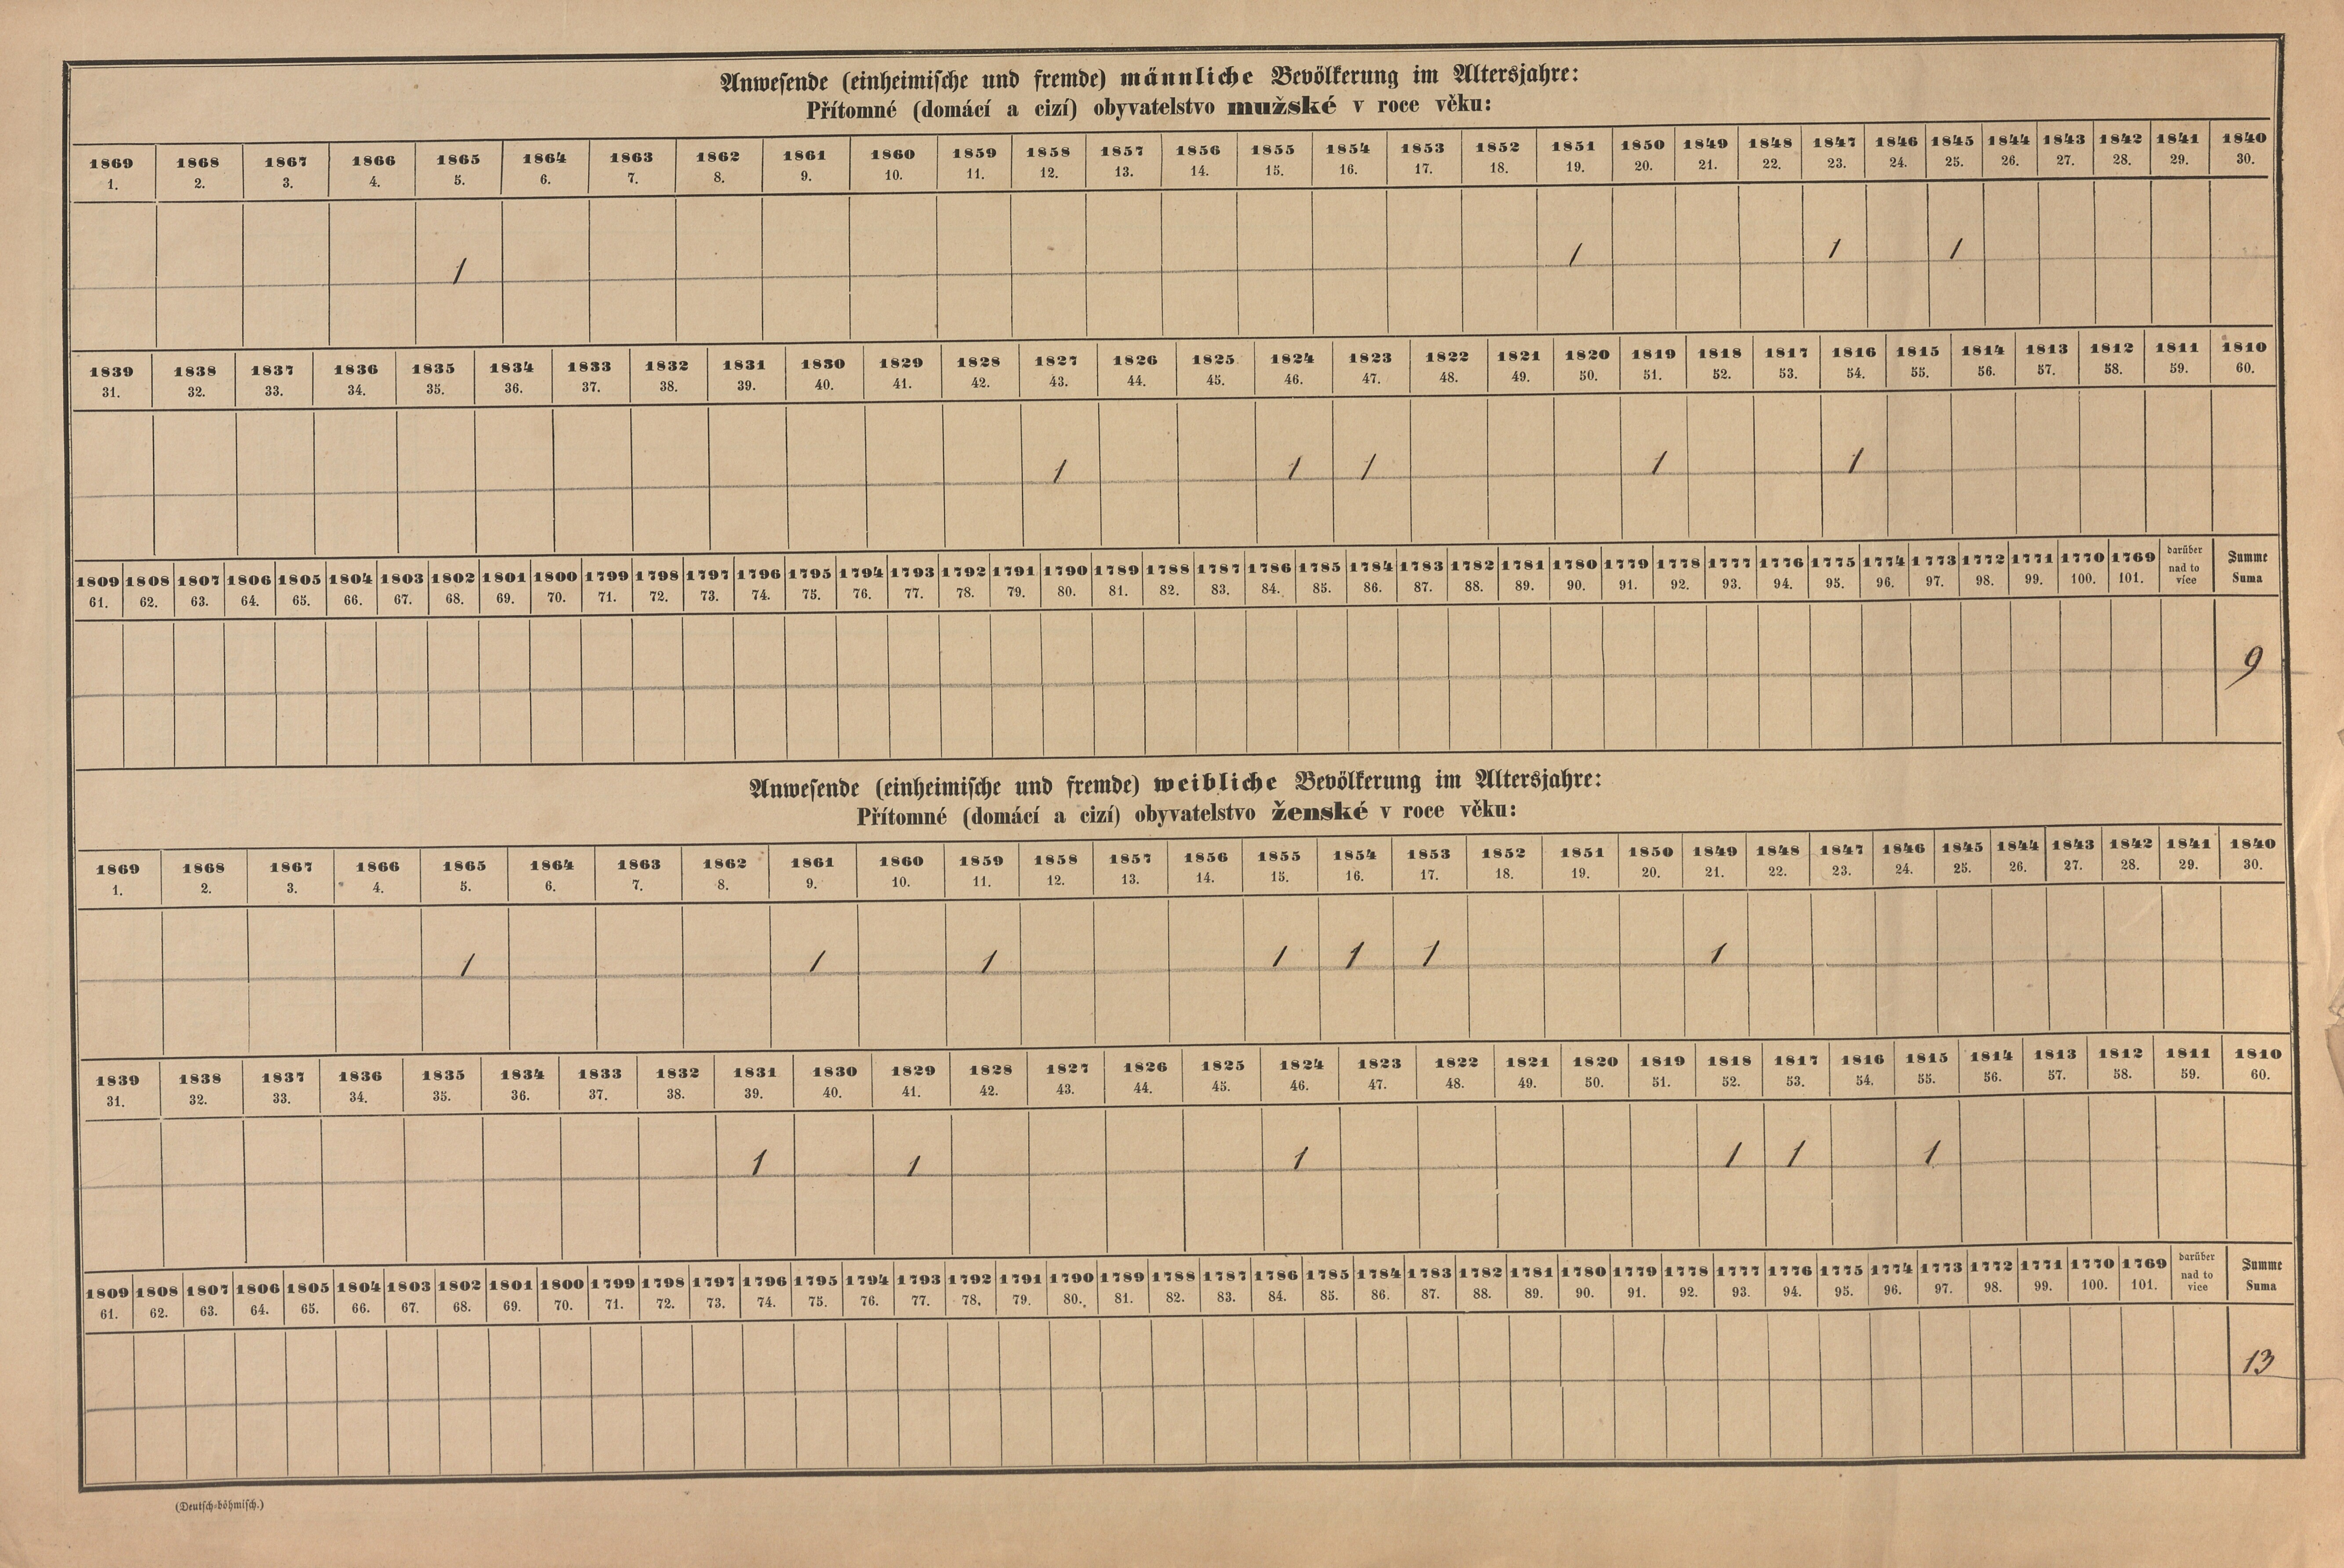 Anwesende (einheimische und fremde) männliche Bevölkerung im Altersjahre:
Přítomné (domácí a cizí) obyvatelstvo mužské v roce věku:
1869 1868 1867 1866 1865 1864 1863 1862 1861 1860 1859 1858 1857 1856 1855 1854 1853 1852 1851 1850 1849 1848 1847 1846 1845 1844 1843 1842 1841 1840
1. 2. 3. 4. 5. 6. 7. 8. 9. 10. 11. 12. 13. 14. 15. 16. 17. 18. 19. 20. 21. 22. 23. 24. 25. 26. 27. 28. 29. 30.
1 1 1 1
1839 1838 1837 1836 1835 1834 1833 1832 1831 1830 1829 1828 1827 1826 1825 1824 1823 1822 1821 1820 1819 1818 1817 1816 1815 1814 1813 1812 1811 1810
31. 32. 33. 34. 35. 36. 37. 38. 39. 40. 41. 42. 43. 44. 45. 46. 47. 48. 49. 50. 51. 52. 53. 54. 55. 56. 57. 58. 59. 60.
1 1 1 1 1
1809 1808 1807 1806 1805 1804 1803 1802 1801 1800 1799 1798 1797 1796 1795 1794 1793 1792 1791 1790 1789 1788 1787 1786 1785 1784 1783 1782 1781 1780 1779 1778 1777 1776 1775 1774 1773 1772 1771 1770 1769 darüber nad to více Summe
61. 62. 63. 64. 65. 66. 67. 68. 69. 70. 71. 72. 73. 74. 75. 76. 77. 78. 79. 80. 81. 82. 83. 84. 85. 86. 87. 88. 89. 90. 91. 92. 93. 94. 95. 96. 97. 98. 99. 100. 101. Suma
9
Anwesende (einheimische und fremde) weibliche Bevölkerung im Altersjahre:
Přítomné (domácí a cizí) obyvatelstvo ženské v roce věku:
1869 1868 1867 1866 1865 1864 1863 1862 1861 1860 1859 1858 1857 1856 1855 1854 1853 1852 1851 1850 1849 1848 1847 1846 1845 1844 1843 1842 1841 1840
1. 2. 3. 4. 5. 6. 7. 8. 9. 10. 11. 12. 13. 14. 15. 16. 17. 18. 19. 20. 21. 22. 23. 24. 25. 26. 27. 28. 29. 30.
1 1 1 1 1 1 1
1839 1838 1837 1836 1835 1834 1833 1832 1831 1830 1829 1828 1827 1826 1825 1824 1823 1822 1821 1820 1819 1818 1817 1816 1815 1814 1813 1812 1811 1810
31. 32. 33. 34. 35. 36. 37. 38. 39. 40. 41. 42. 43. 44. 45. 46. 47. 48. 49. 50. 51. 52. 53. 54. 55. 56. 57. 58. 59. 60.
1 1 1 1 1 1
1809 1808 1807 1806 1805 1804 1803 1802 1801 1800 1799 1798 1797 1796 1795 1794 1793 1792 1791 1790 1789 1788 1787 1786 1785 1784 1783 1782 1781 1780 1779 1778 1777 1776 1775 1774 1773 1772 1771 1770 1769 darüber nad to více Summe
61. 62. 63. 64. 65. 66. 67. 68. 69. 70. 71. 72. 73. 74. 75. 76. 77. 78. 79. 80. 81. 82. 83. 84. 85. 86. 87. 88. 89. 90. 91. 92. 93. 94. 95. 96. 97. 98. 99. 100. 101. Suma
13
(Deutsch-böhmisch.)